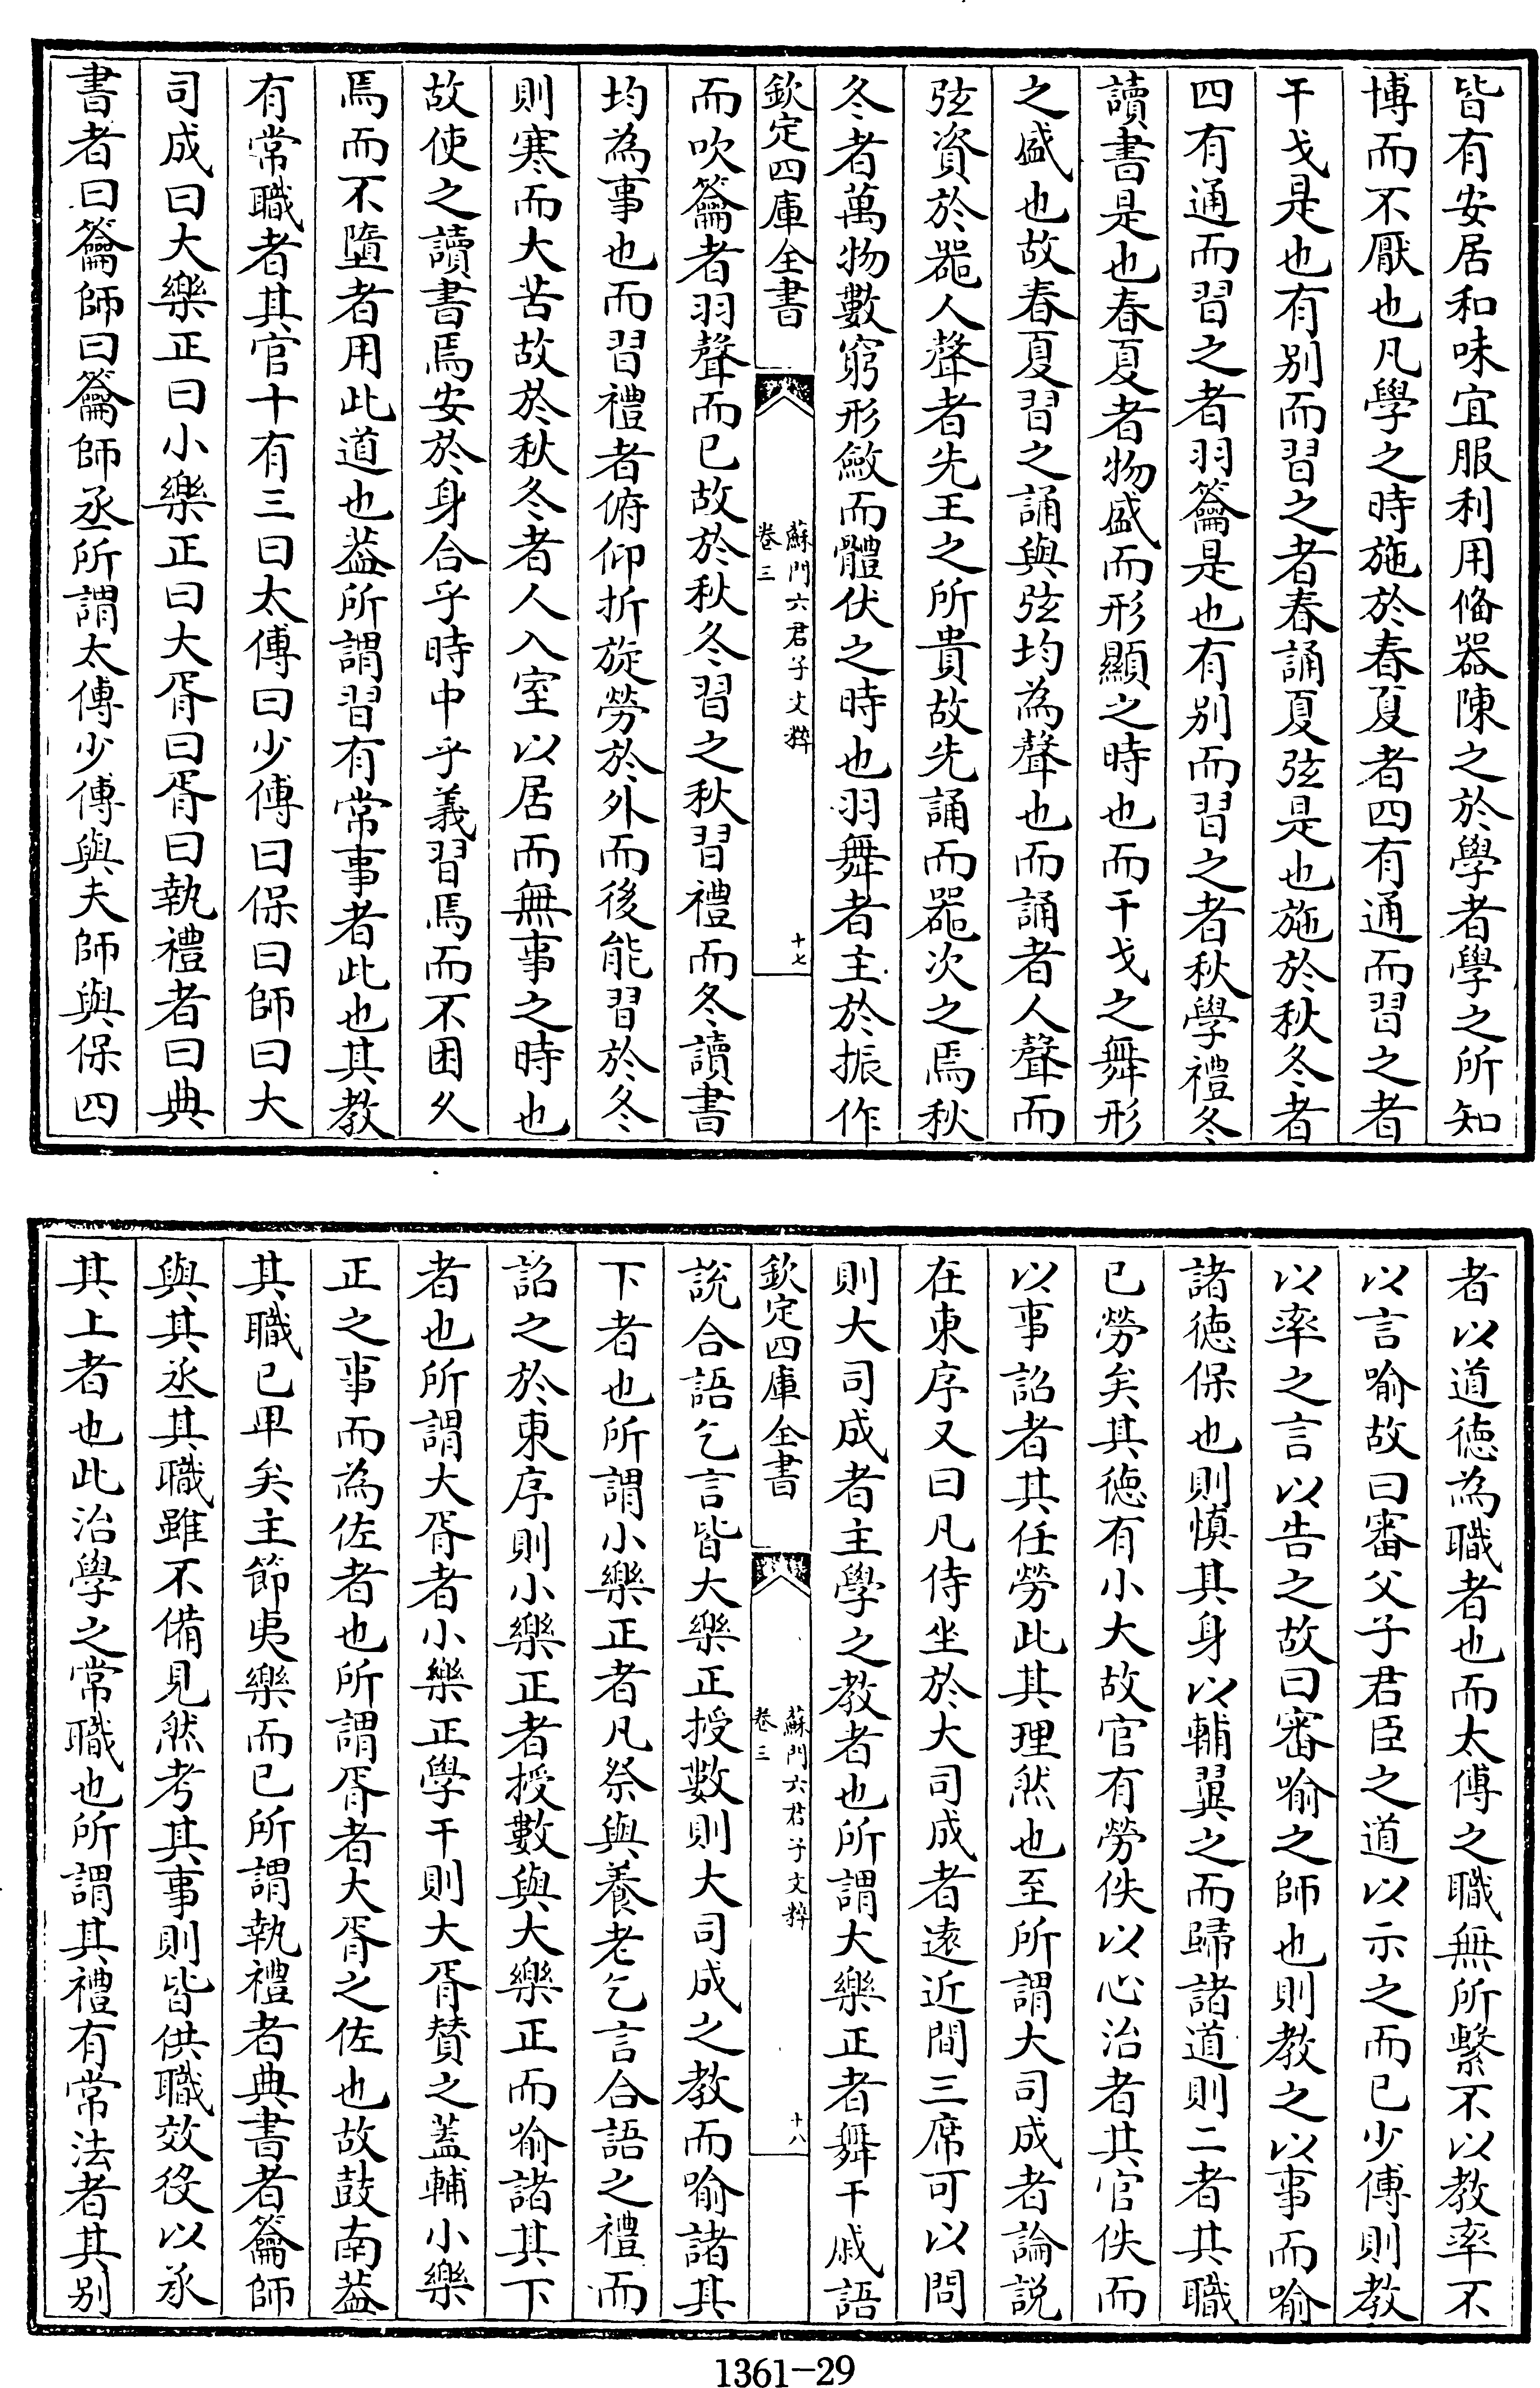 皆有安居和味宜服利用俻器陳之於學者學之所知
博而不厭也凡學之時施於春夏者四有通而習之者
干戈是也有别而習之者春誦夏弦是也施於秋冬者
四有通而習之者羽籥是也有别而習之者秋學禮冬
讀書是也春夏者物盛而形顯之時也而干戈之舞形
之盛也故春夏習之誦與弦均為聲也而誦者人聲而
弦資於噐人聲者先王之所貴故先誦而噐次之焉秋
冬者萬物數窮形斂而體伏之時也羽舞者主於振作
欽定四庫全書
蘇門六君子文粹
卷三
十七
而吹籥者羽聲而已故於秋冬習之秋習禮而冬讀書
均為事也而習禮者俯仰折旋勞於外而後能習於冬
則寒而大苦故於秋冬者人入室以居而無事之時也
故使之讀書焉安於身合乎時中乎義習焉而不困久
焉而不墮者用此道也葢所謂習有常事者此也其教
有常職者其官十有三曰太傅曰少傅曰保曰師曰大
司成曰大樂正曰小樂正曰大胥曰胥曰執禮者曰典
書者曰籥師曰籥師丞所謂太傅少傅與夫師與保四
者以道徳為職者也而太傅之職無所繫不以教率不
以言喻故曰審父子君臣之道以示之而已少傅則教
以率之言以告之故曰審喻之師也則教之以事而喻
諸徳保也則慎其身以輔翼之而歸諸道則二者其職
已勞矣其徳有小大故官有勞佚以心治者其官佚而
以事詔者其任勞此其理然也至所謂大司成者論説
在東序又曰凡侍坐於大司成者逺近間三席可以問
則大司成者主學之教者也所謂大樂正者舞干戚語
欽定四庫全書
蘇門六君子文粹
卷三
十八
説合語乞言皆大樂正授數則大司成之教而喻諸其
下者也所謂小樂正者凡祭與養老乞言合語之禮而
詔之於東序則小樂正者授數與大樂正而喻諸其下
者也所謂大胥者小樂正學干則大胥賛之蓋輔小樂
正之事而為佐者也所謂胥者大胥之佐也故鼓南葢
其職已卑矣主節夷樂而已所謂執禮者典書者籥師
與其丞其職雖不備見然考其事則皆供職效役以承
其上者也此治學之常職也所謂其禮有常法者其别
1361-29